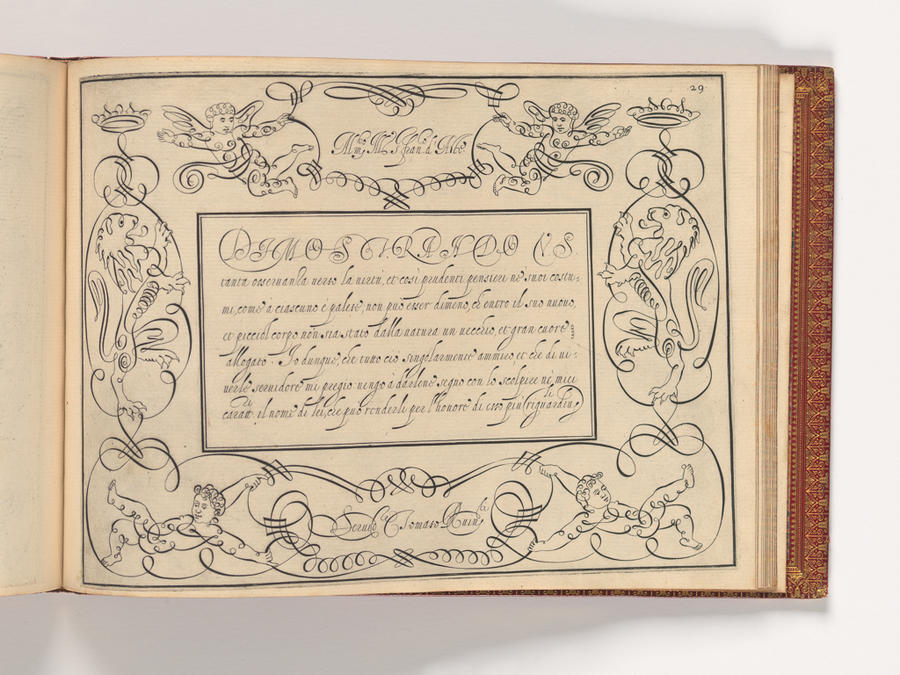 .29.
DIMOSTRANDO V.S.
tanta osseruanza uerso la uirtù, et cosi prudenti pensieri ne suoi costu-
mi, come à ciascuno è palese, non può esser dimeno, ch'entro il suo nuouo,
et picciol corpo non sia stato dalla natura un uecchio, et gran cuore
allogato. Io dunque, che tutto ciò singolarmente ammiro, et che di ui-
uerle seruidore mi pregio uengo à darlene segno con lo scolpire ne' miei
caratt. il nome di lei, che può renderli per l'honore di esso più riguardeu.
Tomaso Ruin